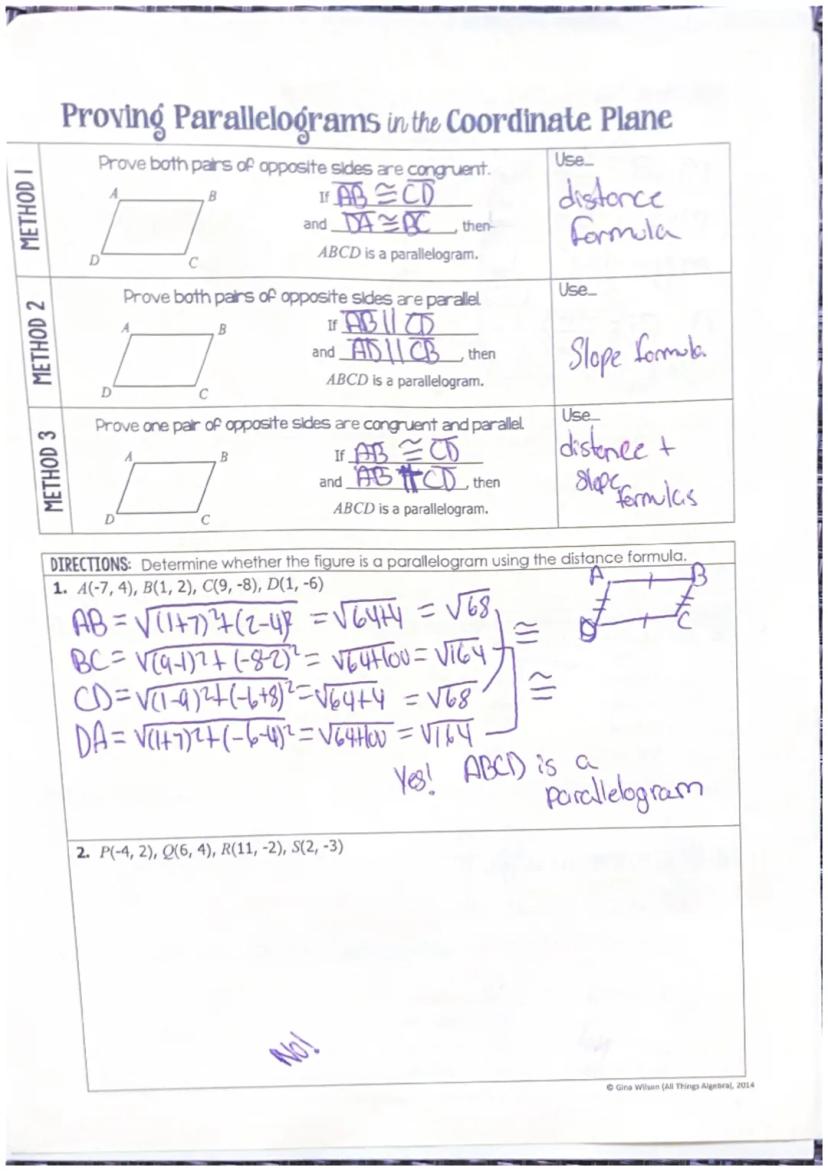 Proving Parallelograms in the Coordinate Plane
METHOD 1
Prove both pairs of opposite sides are congruent.
A B
D C
If AB ≅ CD
and DA ≅ BC, then
ABCD is a parallelogram.
Use...
distance
formula
METHOD 2
Prove both pairs of opposite sides are parallel.
A B
D C
If AB || CD
and AD || CB, then
ABCD is a parallelogram.
Use...
Slope formula.
METHOD 3
Prove one pair of opposite sides are congruent and parallel.
A B
D C
If AB ≅ CD
and AB || CD, then
ABCD is a parallelogram.
Use...
distance +
slope
formulas
DIRECTIONS: Determine whether the figure is a parallelogram using the distance formula.
1. A(-7, 4), B(1, 2), C(9, -8), D(1, -6)
A B
D C
AB = √(1+7)²+(2-4)² = √64+4 = √68
BC = √(9-1)²+(-8-2)² = √64+100 = √164
≅
CD = √(1-9)²+(-6+8)² = √64+4 = √68
≅
DA = √(1+7)²+(-6-4)² = √64+100 = √164
Yes! ABCD is a
parallelogram
2. P(-4, 2), Q(6, 4), R(11, -2), S(2, -3)
No!
© Gina Wilson (All Things Algebra), 2014